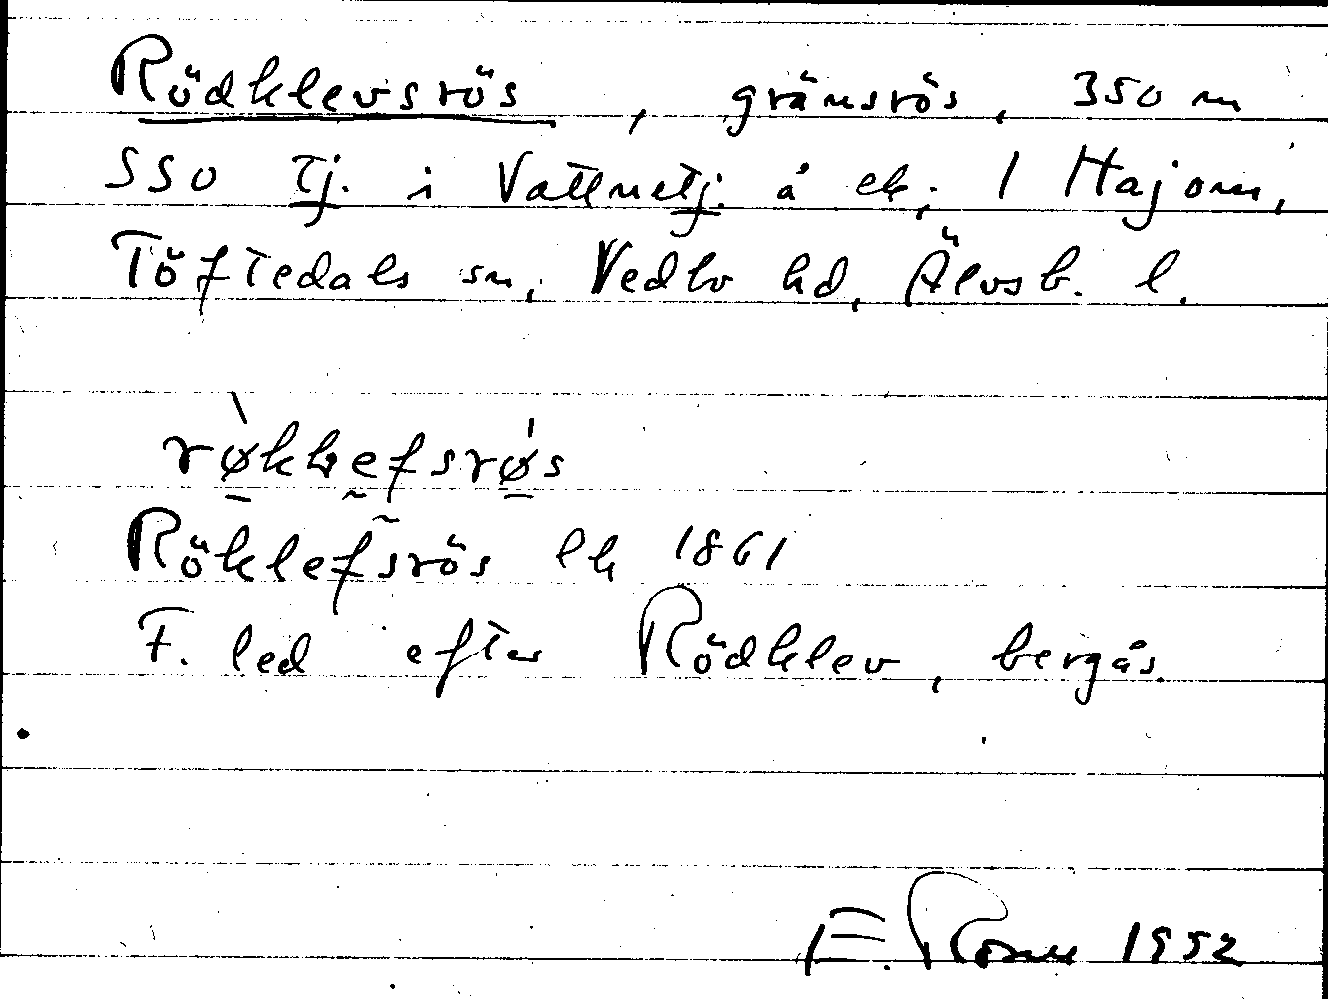 Rödklevsrös, gränsrös, 350 m
SSO Tj. i Vattnetj. å ek; 1 Hajom,
Töftedals sn, Vedbo hd, Älvsb. l.
røkkefsrøs
Röklefsrös lk 1861
F. led efter Rödklev, bergås.
E. 1952